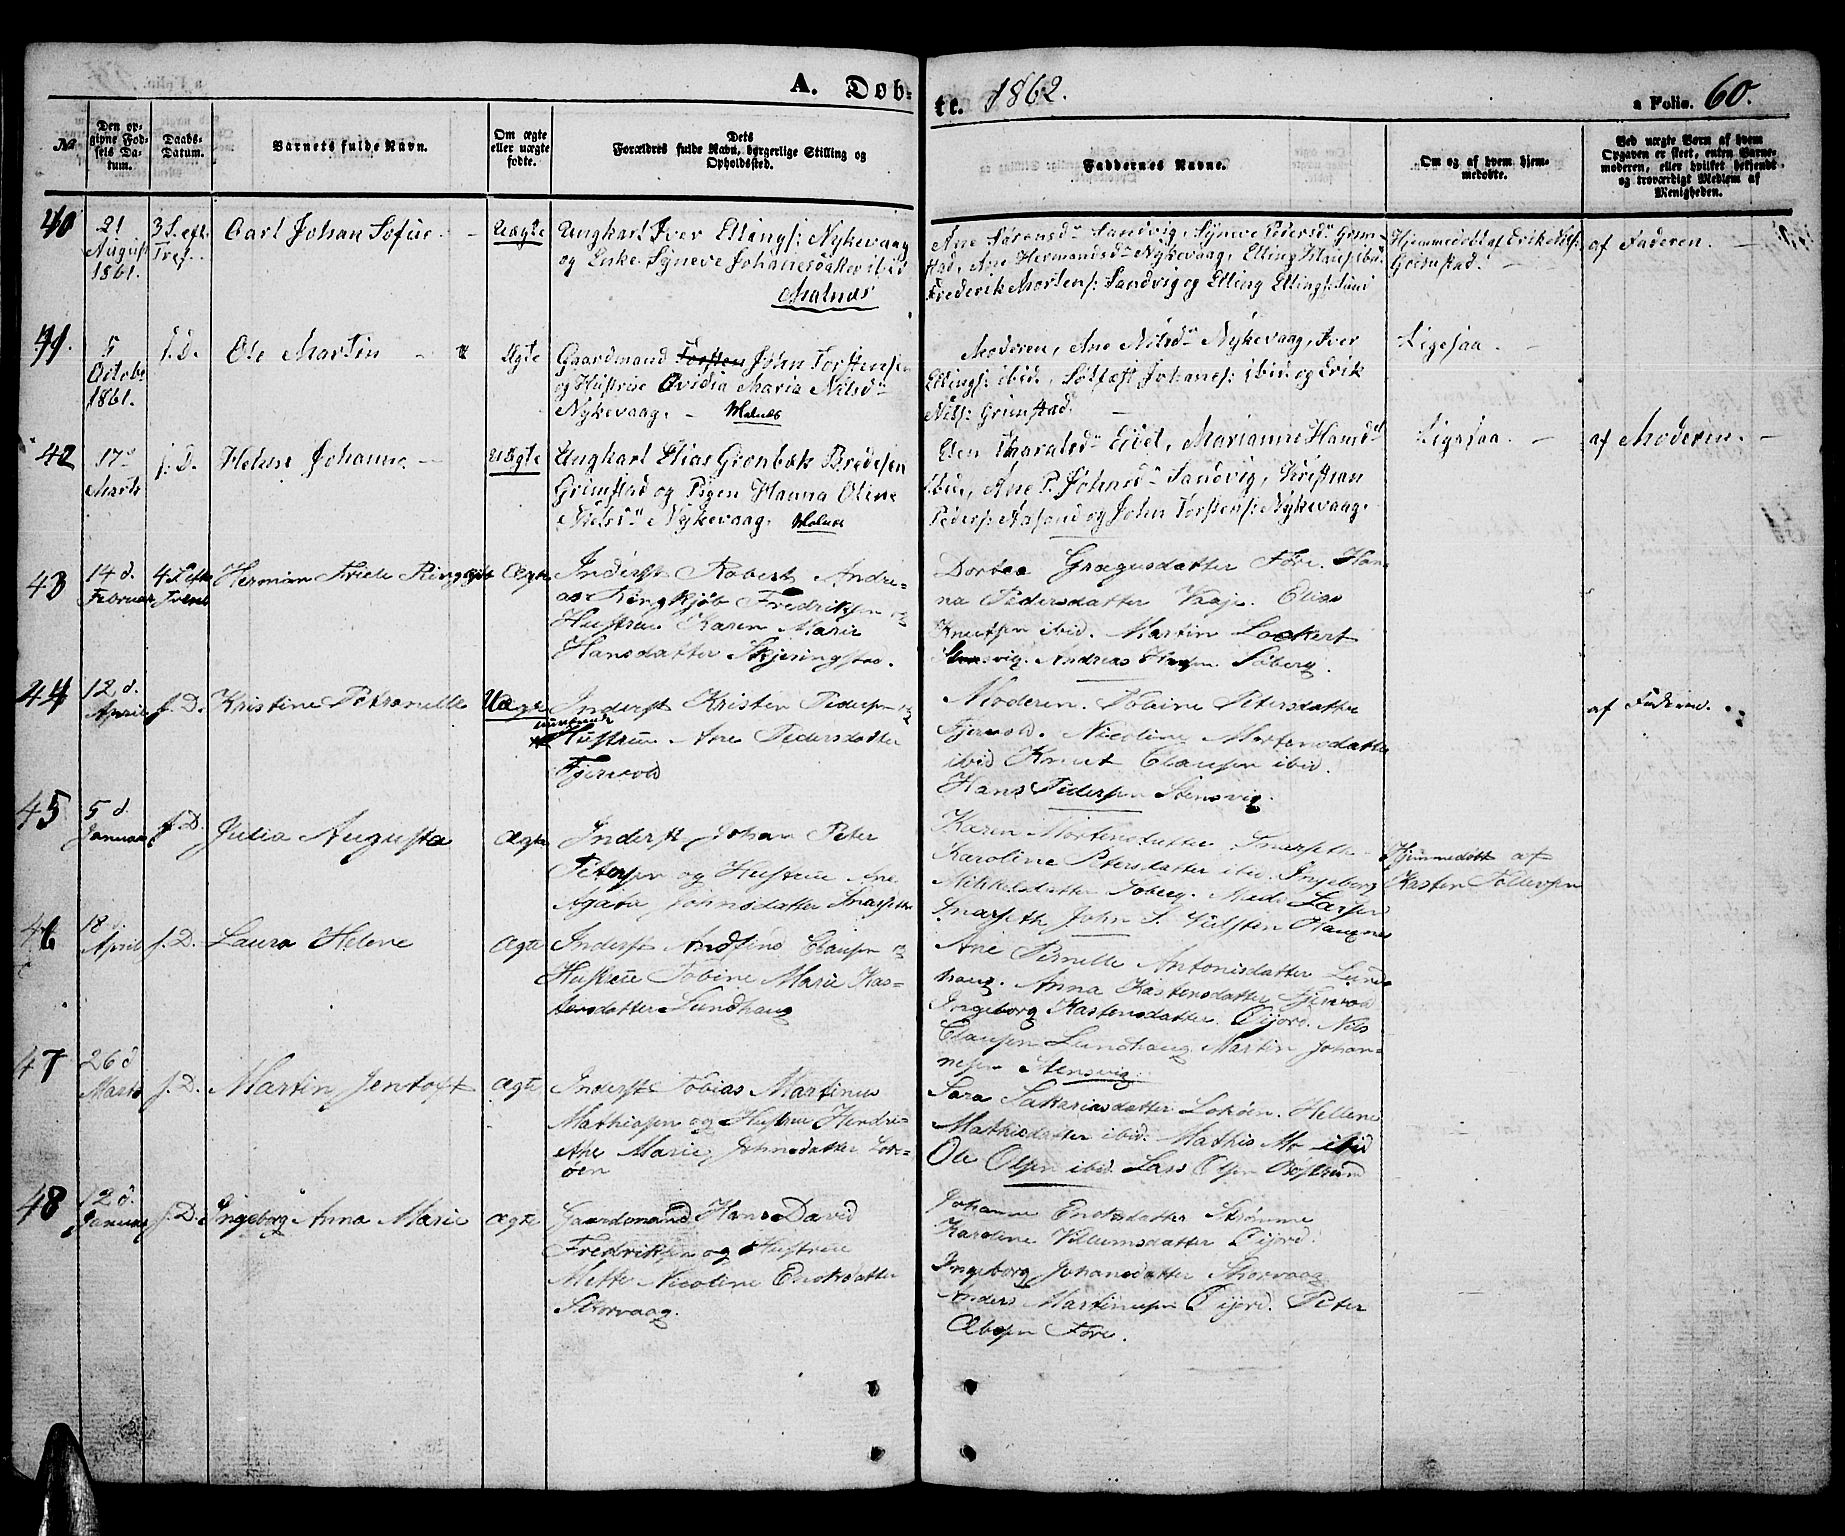 A. Døb-
te. 1862.
a Folio. 60.
No
Den opgivne Fødsels Datum.
Daabs-Datum.
Barnets fulde Navn.
Om ægte eller uægte fødte.
Dets Forældres fulde Navn, borgerlige Stilling og Opholdssted.
Faddernes Navne.
Om og af hvem hjemmedøbte.
Ved uægte Børn af hvem Opgaven er skeet, enten Barnemoderen, eller hvilket bekjendt og troværdigt Medlem af Menigheden.
40 21 August 1861. 3 S. eft. Tref. Carl Johan Sofus Uægte
Ungkarl Iver Ellings: Nykevaag
og Enke Syneve Johanesdatter ibid
Malnæs
Ane Sørensdr Sandvig, Syneve Pedersdr Grim-
stad, Ane Hermandsdr Nykevaag, Elling Klaus: ibid
Frederik Mortens: Sandvig og Elling Ellings: Sund
Hjemmedøbt af Erik Nils:
Grimstad.
af Faderen.
41. 5 Octobr 1861. s. D. Ole Martin Ægte
Gaardmand John Torstensen
og Hustrue Ovidia Maria Nilsdr
Nykevaag. Malnæs
Moderen, Ane Nilsdr Nykevaag, Iver
Ellings: ibid, Solfæst Johanes: ibid og Erik
Nils: Grimstad.
Ligesaa.
42 17de Marts s. D. Helene Johanne Uægte
Ungkarl Elias Grønbæk Bredesen
Grimstad og Pigen Hanna Oline
Nilsdr Nykevaag. Malnæs
Elen Tharalsdr Eidet, Marianne Hansdr
ibid, Ane P. Johnsdr Sandvig, Kristian
Peders: Aasand og John Torstens: Nykevaag.
Ligesaa
af Moderen.
43 14 d. Februar 4 S. eft. Trenit Herman Friele Ringkjøb Ægte
Inderst Robert Andre-
as Ringkjøb Fredriksen og
Hustrue Karen Marie
Hansdatter Skjeringstad.
Dortea Grægusdatter Føre. Han-
na Pedersdatter Vaaje. Elias
Knutsen ibid. Martin Lockert
Stensvig. Andreas Hansen Søberg.
44 12 d. April s. D. Kristine Petronelle Uægte
Inderst Kristen Pedersen og
Hustrue Ane Pedersdatter
Fjærvold
Moderen. Tobine Petersdatter
Fjærvold. Nicoline Mortensdatter
ibid Knut Clausen ibid.
Hans Pedersen Stensvig.
af Faderne.
45 5 d. Januar s. D. Julia Augusta Ægte
Inderst Johan Peter
Petersen og Hustrue Ane
Agata Johnsdatter Snarseth
Karen Mortensdatter Snarseth
Karoline Petersdatter ibid. Ingeborg
Mikkelsdatter Søberg. Mads Larsen
Snarseth. John S.
Hjemmedøbt af
Kasten Tollersen
46 18 d. April s. D. Laura Helene Ægte
Inderst Andfind Clausen og
Hustrue Tobine Marie Kas-
tensdatter Lundhaug
Ane Pernelle Antonisdatter Lund-
haug. Anna Kastensdatter Fjærvold
Ingeborg Kastensdatter Eijord. Nils
Clausen Lundhaug Martin Johan-
nesen Stensvig.
47 26 d Marts s. D. Martin Jentoft Ægte
Inderst Tobias Martinus
Mathisen og Hustrue Hendri-
Ane Marie Johnsdatter Lok-
øen
Sara Sakariasdatter Lokøen. Hellene
Mathisdatter ibid. Mathis M. ibid
Ole Olsen ibid. Lars Olsen
48 12 d. Januar s. D. Ingeborg Anna Marie Ægte
Gaardmand Hans David
Fredriksen og Hustrue
Mette Nicoline Enoksdatter
Skorvaag.
Johanne Enoksdatter Strømme
Karoline Villumsdatter Eijord.
Ingeborg Johansdatter Skorvaag
Anders Martinusen Eijord. Peter
Føre.